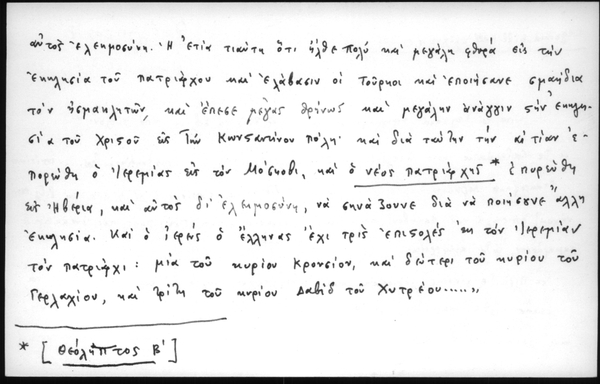 αὐτὸς ἐλεημοσύνη. Ἡ ἐτία τιαύτη ὅτι ἦλθε πολὺ καὶ μεγάλη φθορὰ εἰς τὴν
ἐκκλησία τοῦ πατριάρχου καὶ ἐλάβασιν οἱ Τοῦρκοι καὶ ἐποιήσανε σμαήδια
τὸν ἠσμαηλητῶν, καὶ ἔπεσε μέγας θρῆνως καὶ μεγάλην ἀνάγγιν στὴν ἐκκλη-
σία τοῦ Χριστοῦ εἰς τὴν Κωνσταντίνου πόλη· καὶ διὰ ταύτην τὴν αἰτίαν ἐ-
πορεύθη ὁ Ἱερεμίας εἰς τὸν Μόσκοβι, καὶ ὁ νέος πατριάρχης * ἐπορεύθη
εἰς Ἠβέρια, καὶ αὐτὸς δι' ἐλεημοσύνη, νὰ σηνάξουνε διὰ νὰ ποιήσουνε ἄλλη
ἐκκλησία. Καὶ ὁ ἱερεὺς ὁ Ἕλληνας ἔχι τρὶς ἐπιστολὲς ἐκ τὸν Ἱερεμίαν
τὸν πατριάρχι: μία τοῦ κυρίου Κρουσίου, καὶ δεύτερι τοῦ κυρίου τοῦ
Γερλαχίου, καὶ τρίτη τοῦ κυρίου Δαβὶδ τοῦ Χυτρέου.....»
* [Θεόληπτος Β']